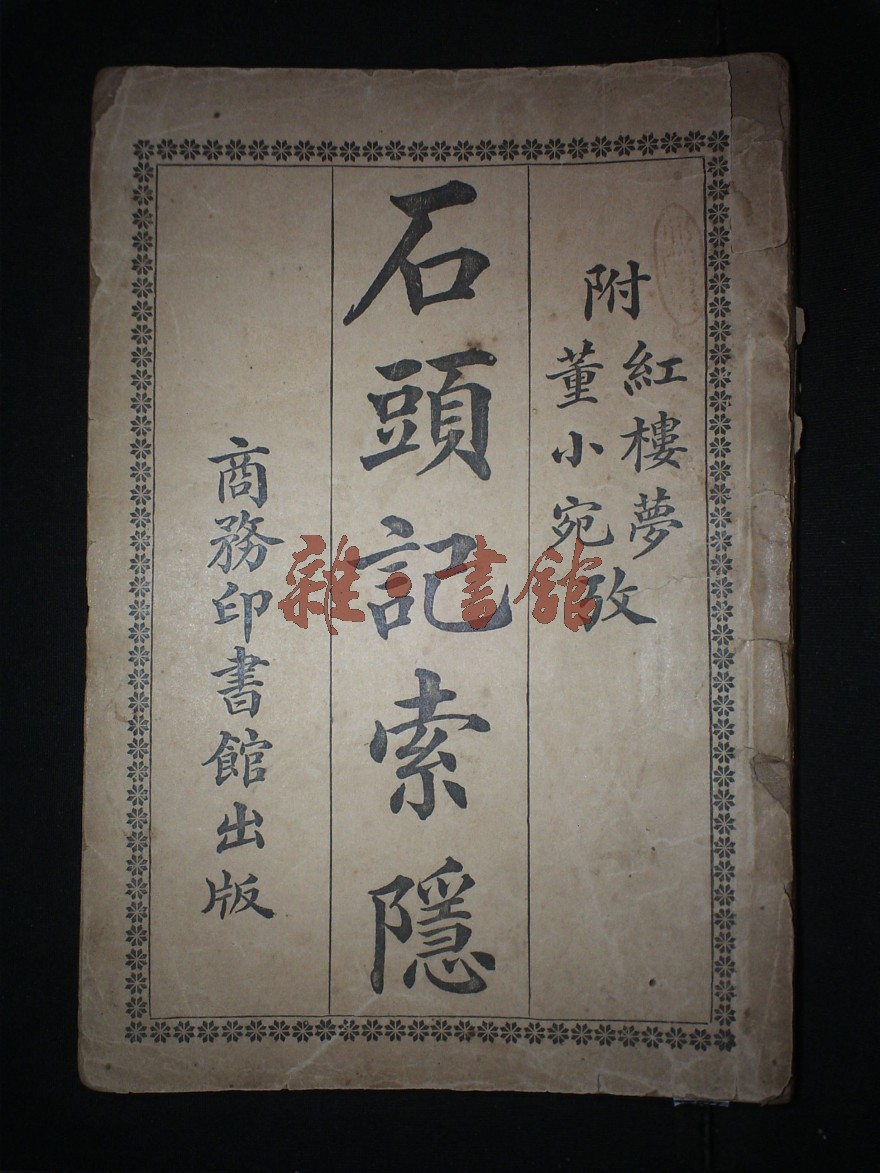 附紅樓夢
董小宛攷
石頭記索隱
商務印書館出版
雜·書館